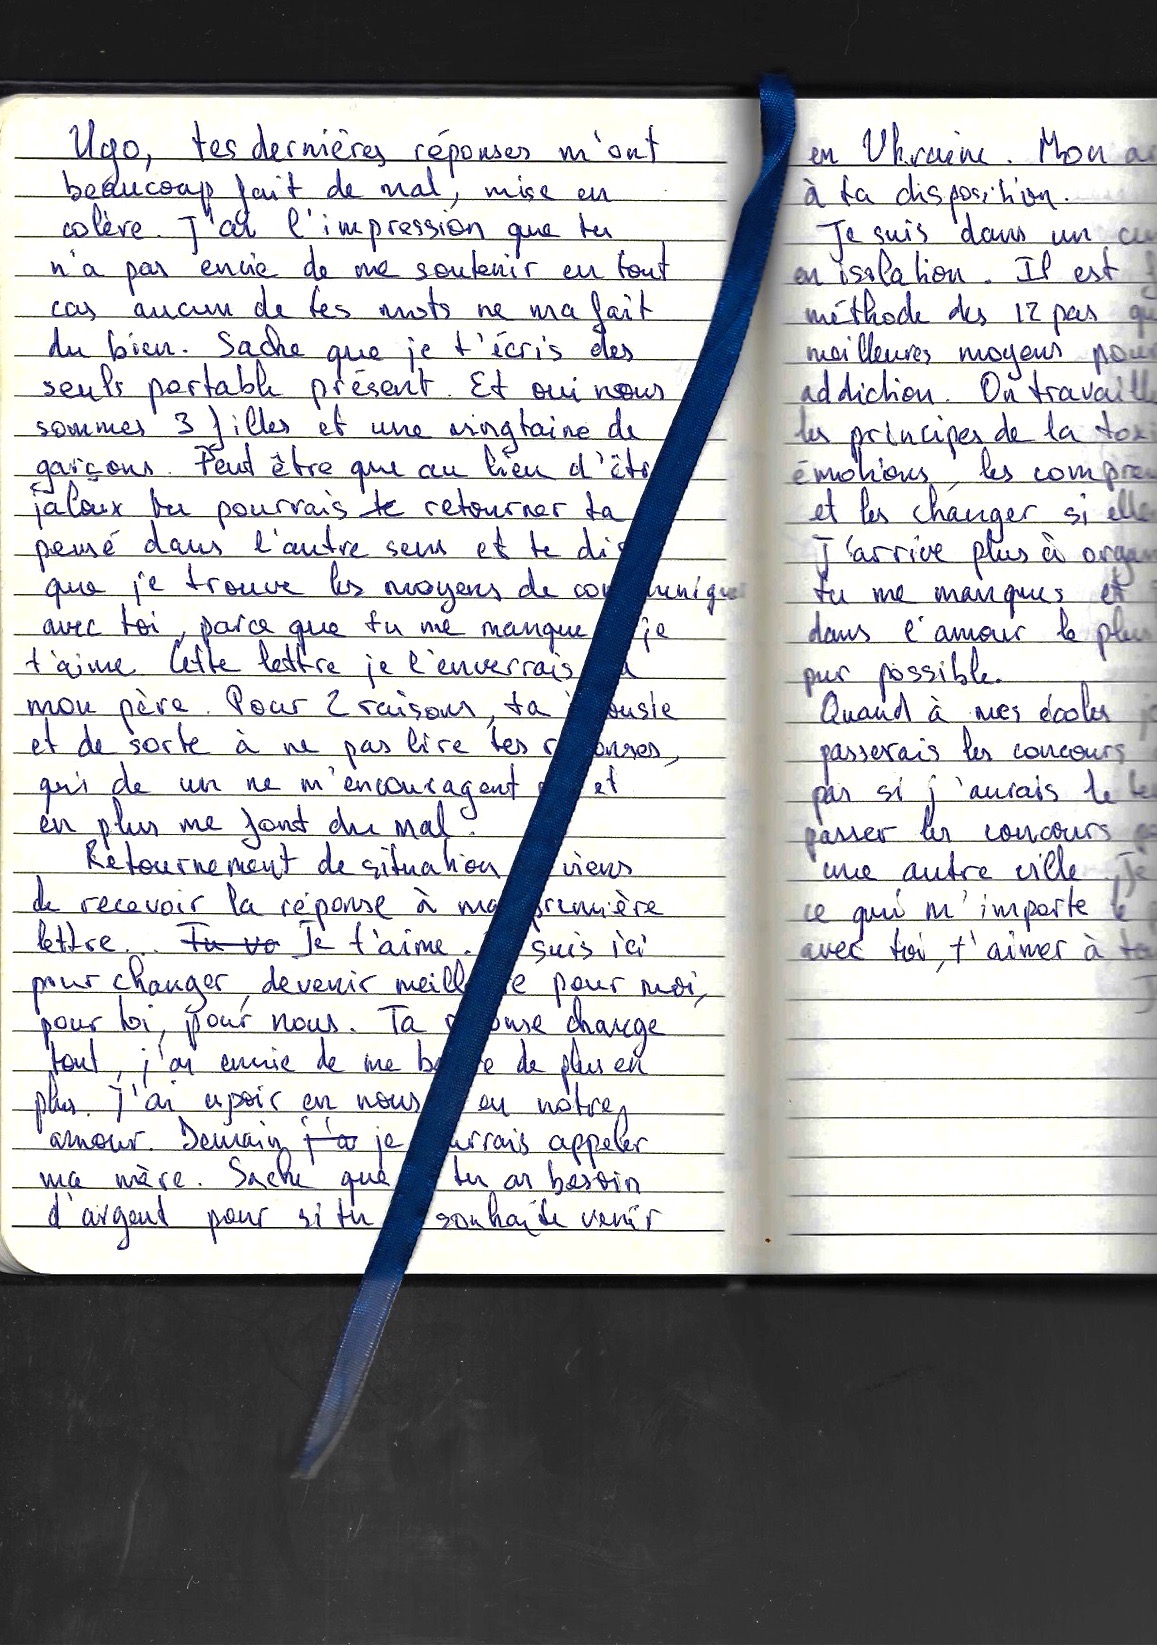 Ugo, tes dernières réponses m'ont
beaucoup fait de mal, mise en
colère. J'ai l'impression que tu
n'a pas envie de me soutenir en tout
cas aucun de tes mots ne ma fait
du bien. Sache que je t'écris des
seuls portable présent. Et oui nous
sommes 3 filles et une vingtaine de
garçons. Peut être que au lieu d'êtr
jaloux tu pourrais te retourner ta
pensé dans l'autre sens et te dis
que je trouve les moyens de communiquer
avec toi, parce que tu me manque je
t'aime. Cette lettre je l'enverrais
mon père. Pour 2 raisons, ta jalousie
et de sorte à ne pas lire tes réponses,
qui de un ne m'encouragent et
en plus me font du mal.
Retournement de situation viens
de recevoir la réponse à ma première
lettre... Tu vo Je t'aime. suis ici
pour changer, devenir meilleure pour moi,
pour toi, pour nous. Ta réponse change
tout, j'ai envie de me battre de plus en
plus. J'ai espoir en nous en notre
amour. Demain j'a je pourrais appeler
ma mère. Sache que tu as besoin
d'argent pour si tu souhaite venir
en Ukraine. Mon
à ta disposition.
Je suis dans un
en isolation. Il est
méthode des 12 pas
meilleures moyens pour
addiction. On travaill
les principes de la
émotions, les
et les changer si elle
J'arrive plus à
tu me manques et
dans l'amour le plus
pur possible.
Quand à mes écoles
passerais les concours
pas si j'aurais le
passer les concours
une autre ville. Je
ce qui m'importe
avec toi, t'aimer à